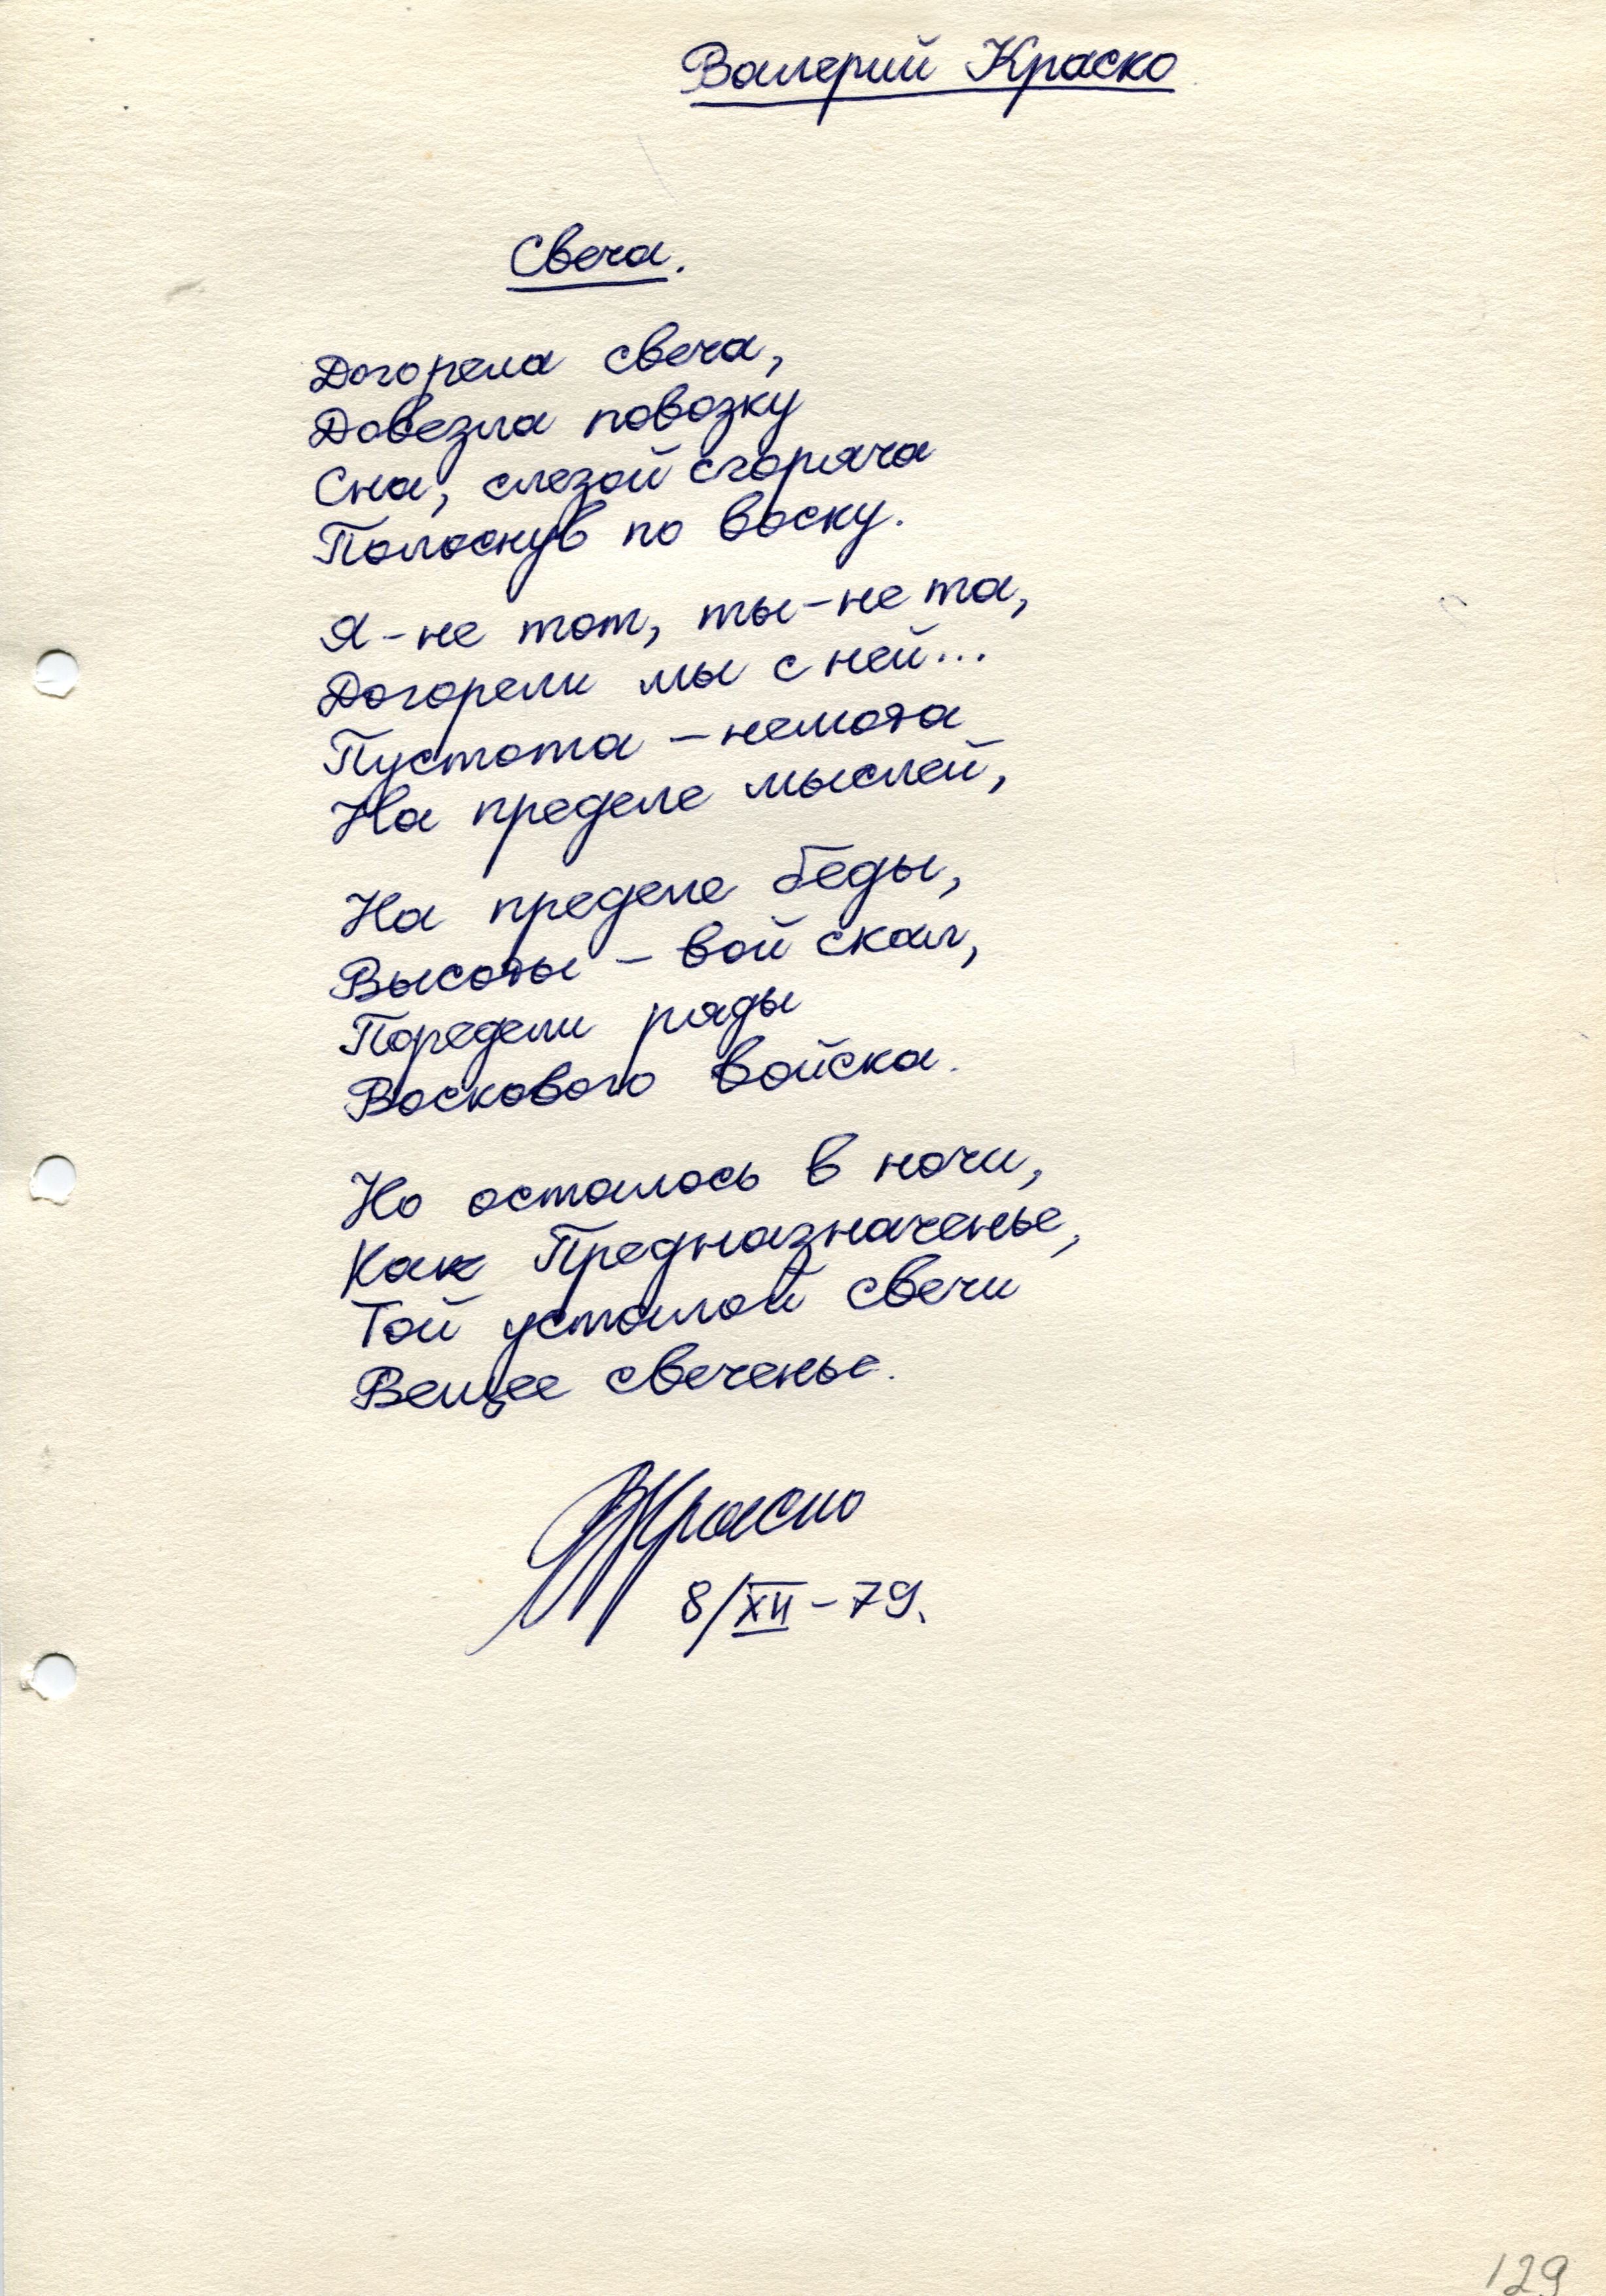 Валерий Краско
Свеча.
Догорела свеча,
Довезла повозку
Сна, слезой сгоряча
Полоснув по воску.
Я – не тот, ты – не та,
Догорели мы с ней...
Пустота – немота
На пределе мыслей,
На пределе беды,
Высоты – вой скал,
Поредели ряды
Воскового войска.
Но осталось в ночи,
Как Предназначенье,
Той усталой свечи
Вещее свеченье.
ВКраско
8/XII – 79.
129